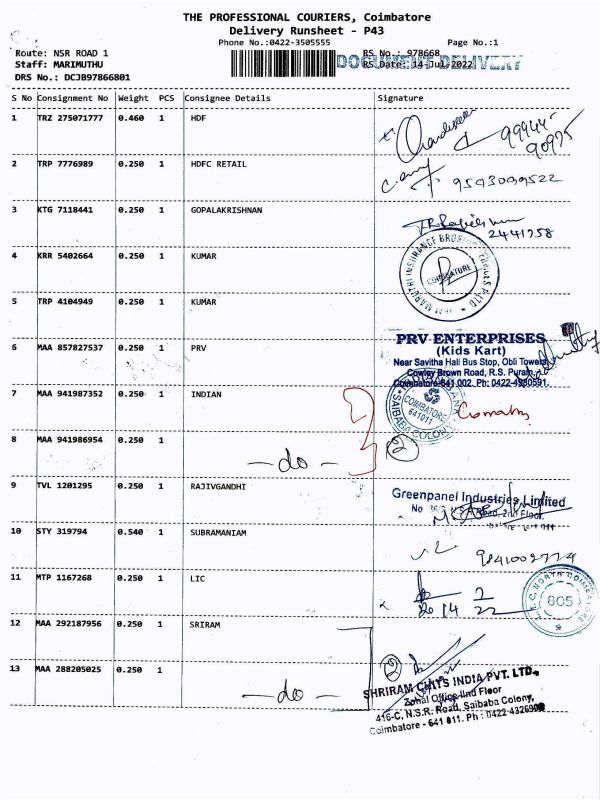 THE PROFESSIONAL COURIERS, Coimbatore
Delivery Runsheet - P43
Phone No.:0422-3505555 Page No.:1
Route: NSR ROAD 1 RS No.: 978668
Staff: MARIMUTHU DOCUMENT DELIVERY
RS Date: 14-Jul-2022
DRS No.: DCJB97866801
S No Consignment No Weight PCS Consignee Details Signature
1 TRZ 275071777 0.460 1 HDF
99945
90975
2 TRP 7776989 0.250 1 HDFC RETAIL
9593099522
3 KTG 7118441 0.250 1 GOPALAKRISHNAN
2441758
4 KRR 5402664 0.250 1 KUMAR
MARUTHI INSURANCE BROKING SERVICES P LTD
COIMBATORE
5 TRP 4104949 0.250 1 KUMAR
6 MAA 857827537 0.250 1 PRV
PRV ENTERPRISES
(Kids Kart)
Near Savitha Hall Bus Stop, Obli Towers
Cowley Brown Road, R.S. Puram,
Coimbatore-641 002. Ph: 0422-4980591.
7 MAA 941987352 0.250 1 INDIAN
COIMBATORE
641011
SAIBABA COLONY
8 MAA 941986954 0.250 1
- do - 2
9 TVL 1201295 0.250 1 RAJIVGANDHI
Greenpanel Industries Limited
Road, 2nd Floor,
10 STY 319794 0.540 1 SUBRAMANIAM
9841002774
11 MTP 1167268 0.250 1 LIC
805
12 MAA 292187956 0.250 1 SRIRAM
2
13 MAA 288205025 0.250 1
- do -
SHRIRAM CHITS INDIA PVT. LTD.,
Zonal Office IInd Floor
416-C, N.S.R. Road, Saibaba Colony,
Coimbatore - 641 011. Ph : 0422-432690